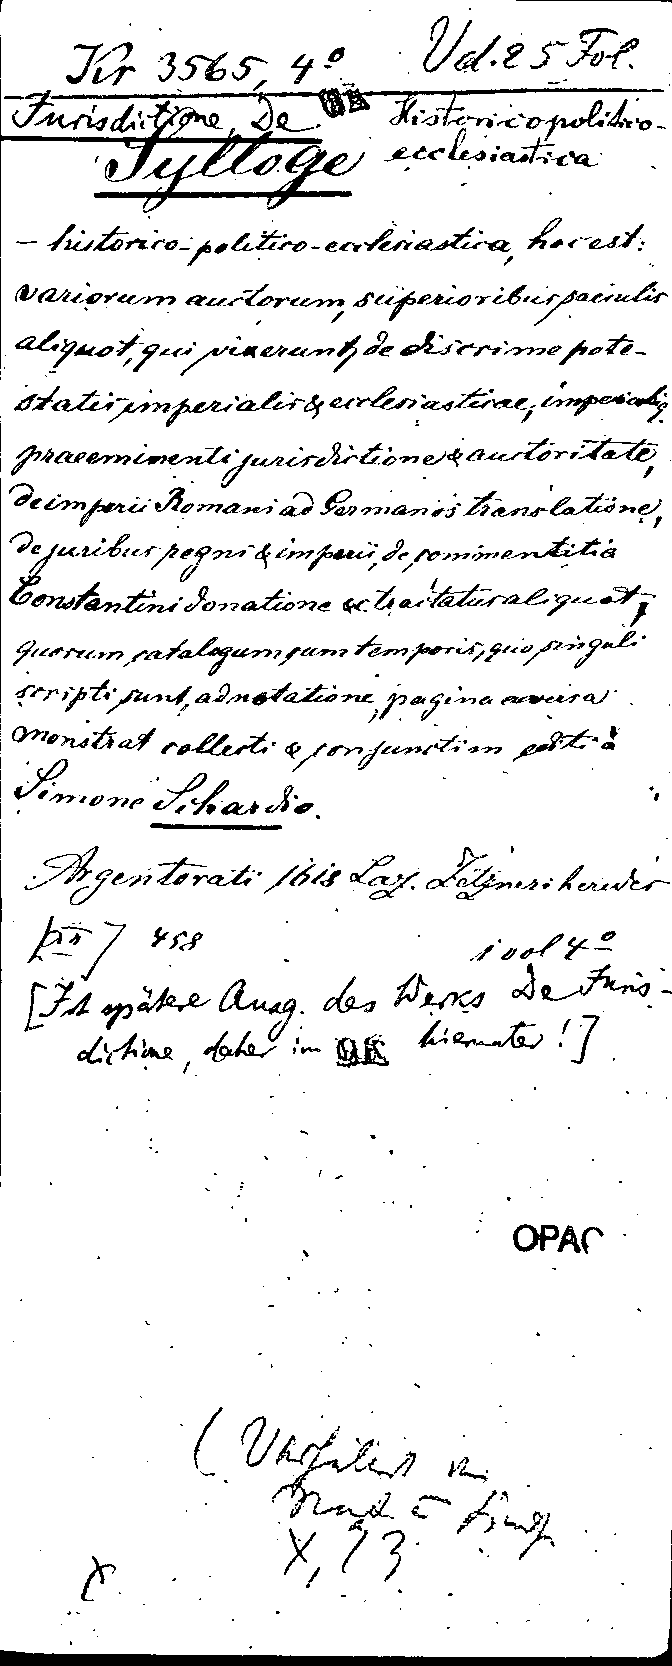 Kr 3565, 4° Vd. 25 Fol.
Jurisdictione, De GK Historicopolitico-
Sylloge ecclesiastica
- historico-politico-ecclesiastica, hoc est:
variorum auctorum, superioribus saeculis
aliquot, qui vixerunt, de discrime pote-
statis imperialis & ecclesiasticae, imperialiq.
praeeminenti jurisdictione & auctoritate,
de imperii Romani ad Germanos translatione,
de juribus regni & imperii, de commentitia
Constantini donatione &c tractatus aliquot,
quorum catalogum cum temporis, quo singuli
scripti sunt, adnotatione, pagina aversa
monstrat collecti & conjunctim editi à
Simone Schardio.
Argentorati 1618 Laz. Zetzneri heredes
458 1 vol 4°
[Ist spätere Ausg. des Werks De Juris-
dictione, daher im GK hierunter!]
OPAC
X, 73
x